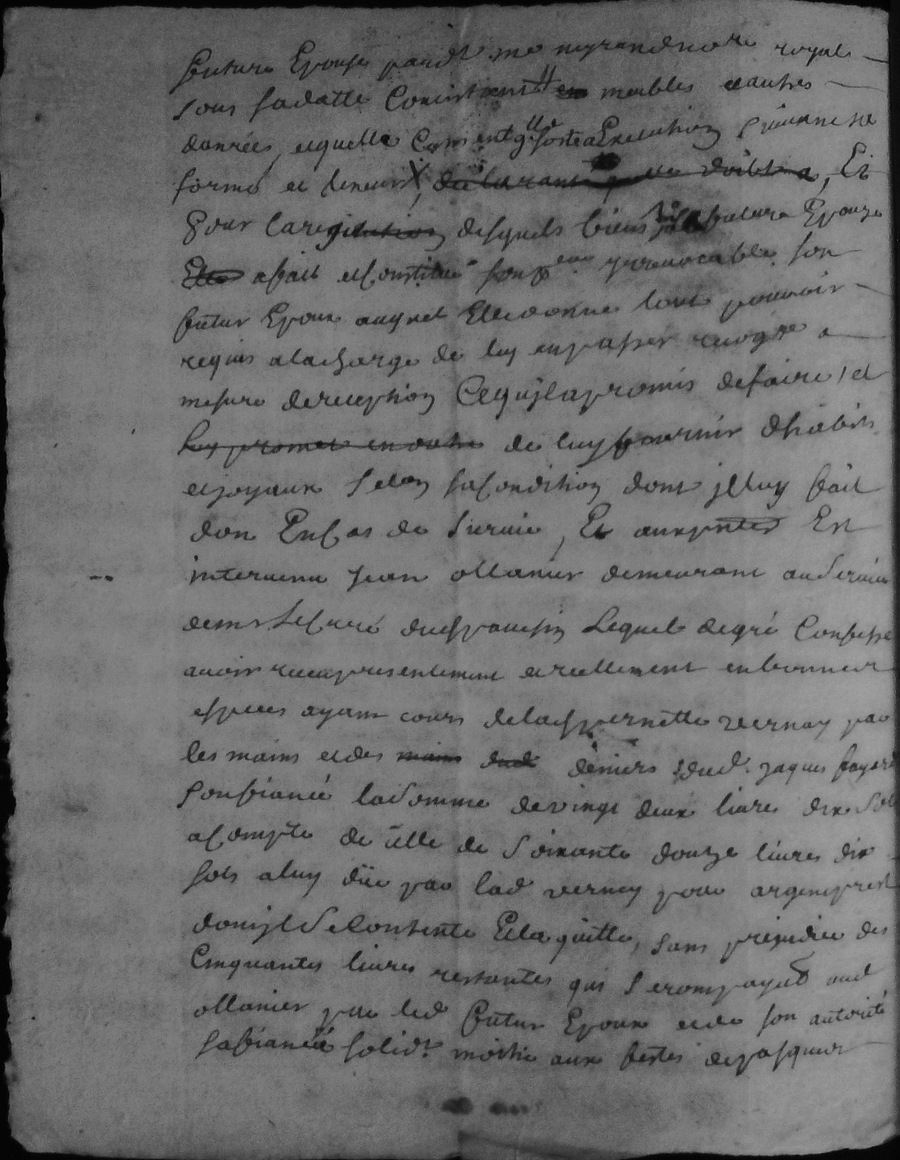 future Epouse pardt me mgrand nore royal
sous sadatte Consistant en meubles et autres
danrées, lequelle Consent qlle sorte a Execution suivant sa
forme et teneur, declarant quelle doibt a, Et
Pour la regitation desquels biens lad future Epouze
Elle a fait et Constitué son preur irrevocable son
futur Epoux auquel Elle donne tout pouvoir
requis a la charge de luy en passer recogre a
mesure de reception Ce quil a promis de faire, et
luy promet en outre de luy fournir d'habits
et joyaux Selon sa Condition dont il luy fait
don En Cas de Survie, Et aux pntes Est
intervenu Jean ollanier demeurant au Service
de mr le Curé Lequel de gré Confesse
avoir receu presentement et reellement en bonnes
especes ayant cours de lad pernette vernay par
les mains et des mains dud deniers dud. Jaques fayard
son fiancé la Somme de vingt deux livres dix Sols
a Compte de celle de Soixante douze livres dix
sols a luy düe par lad vernay pour argent prest
dont il Se Contente Et la quitte, sans prejudice des
Cinquantes livres restantes qui Seront payés aud
ollanier par led futur Epoux et de son autorité
sa fiancée solidt moitié aux festes de pasques